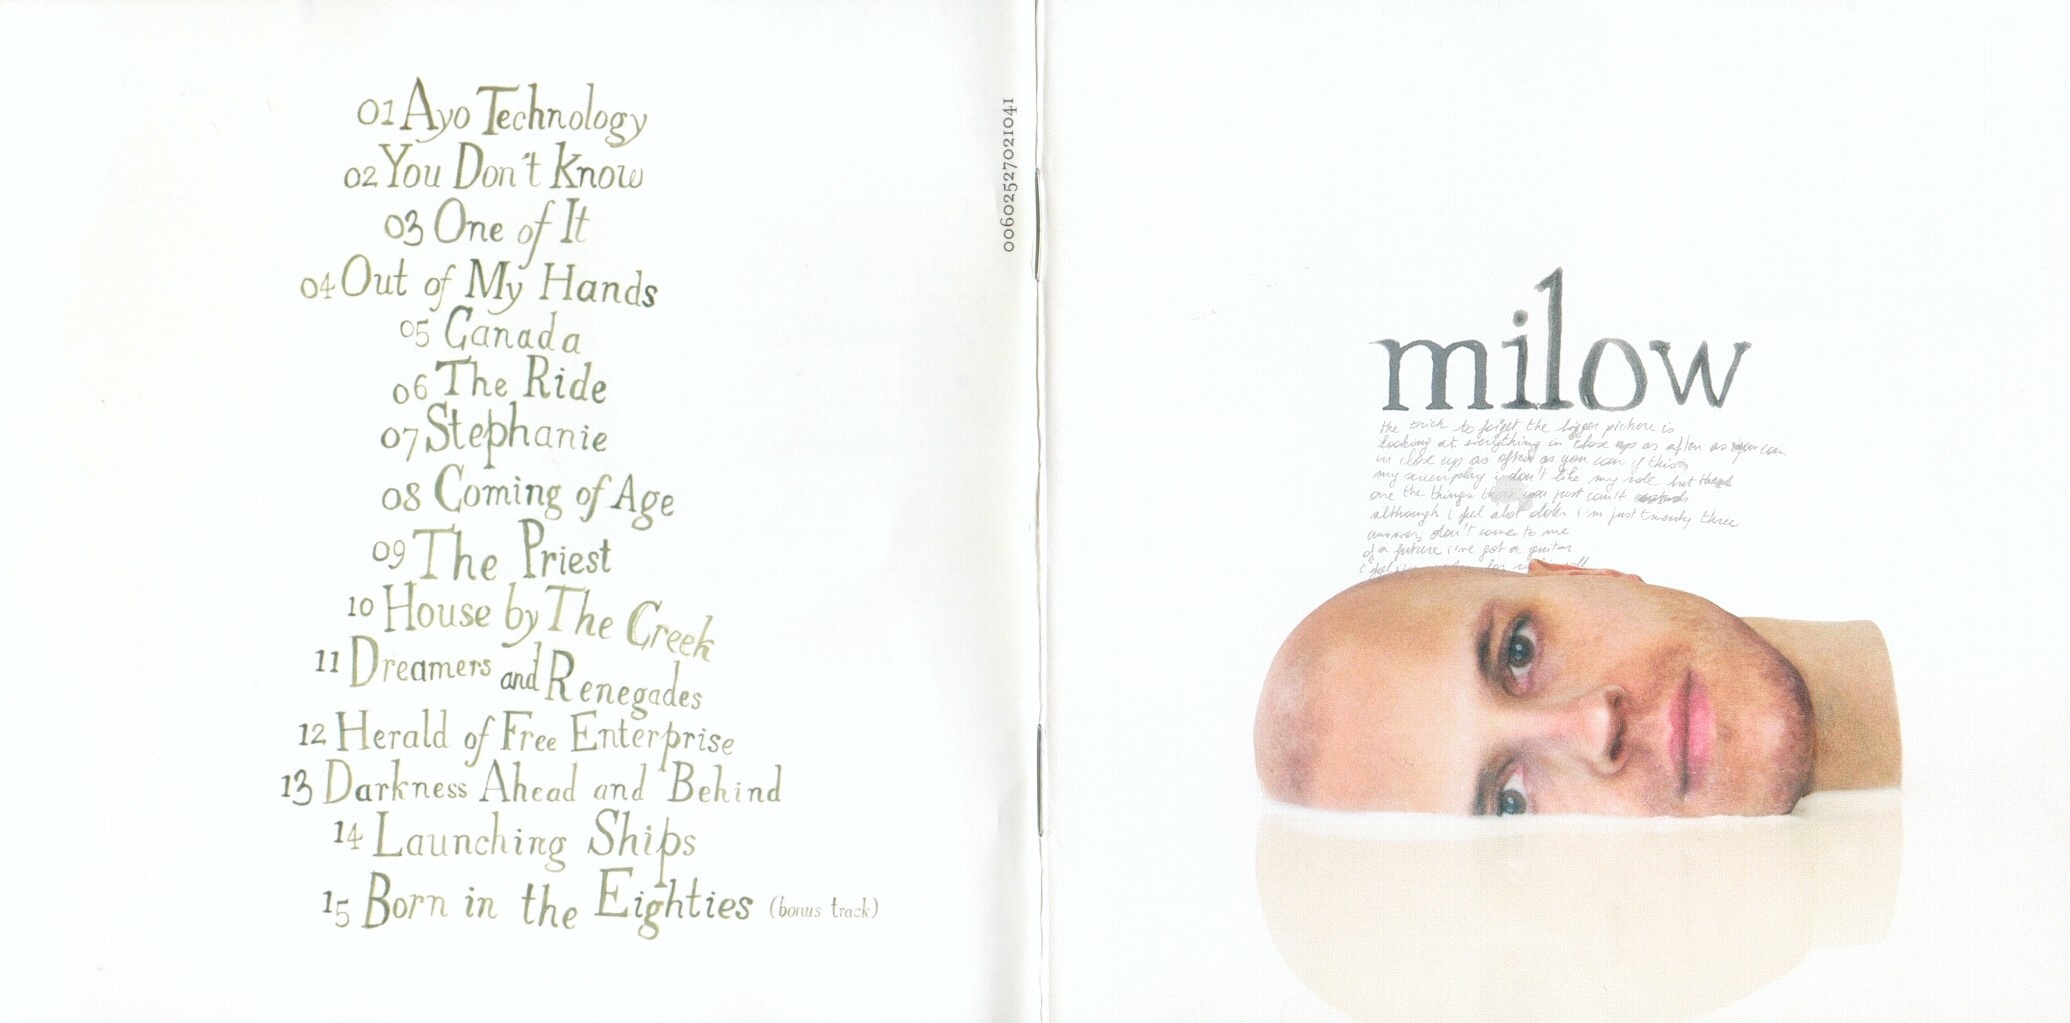 01 Ayo Technology
02 You Don't Know
03 One of It
04 Out of My Hands
05 Canada
06 The Ride
07 Stephanie
08 Coming of Age
09 The Priest
10 House by The Creek
11 Dreamers and Renegades
12 Herald of Free Enterprise
13 Darkness Ahead and Behind
14 Launching Ships
15 Born in the Eighties (bonus track)
00602527021041
milow
the trick to forget the bigger picture is
looking at everything in close ups as often as you can
in close up as often as you can if this is
my screenplay i don't like my role but these
are the things that you just can't
although i feel alot older i'm just twenty three
answers don't come to me
of a future i've got a guitar
i feel for